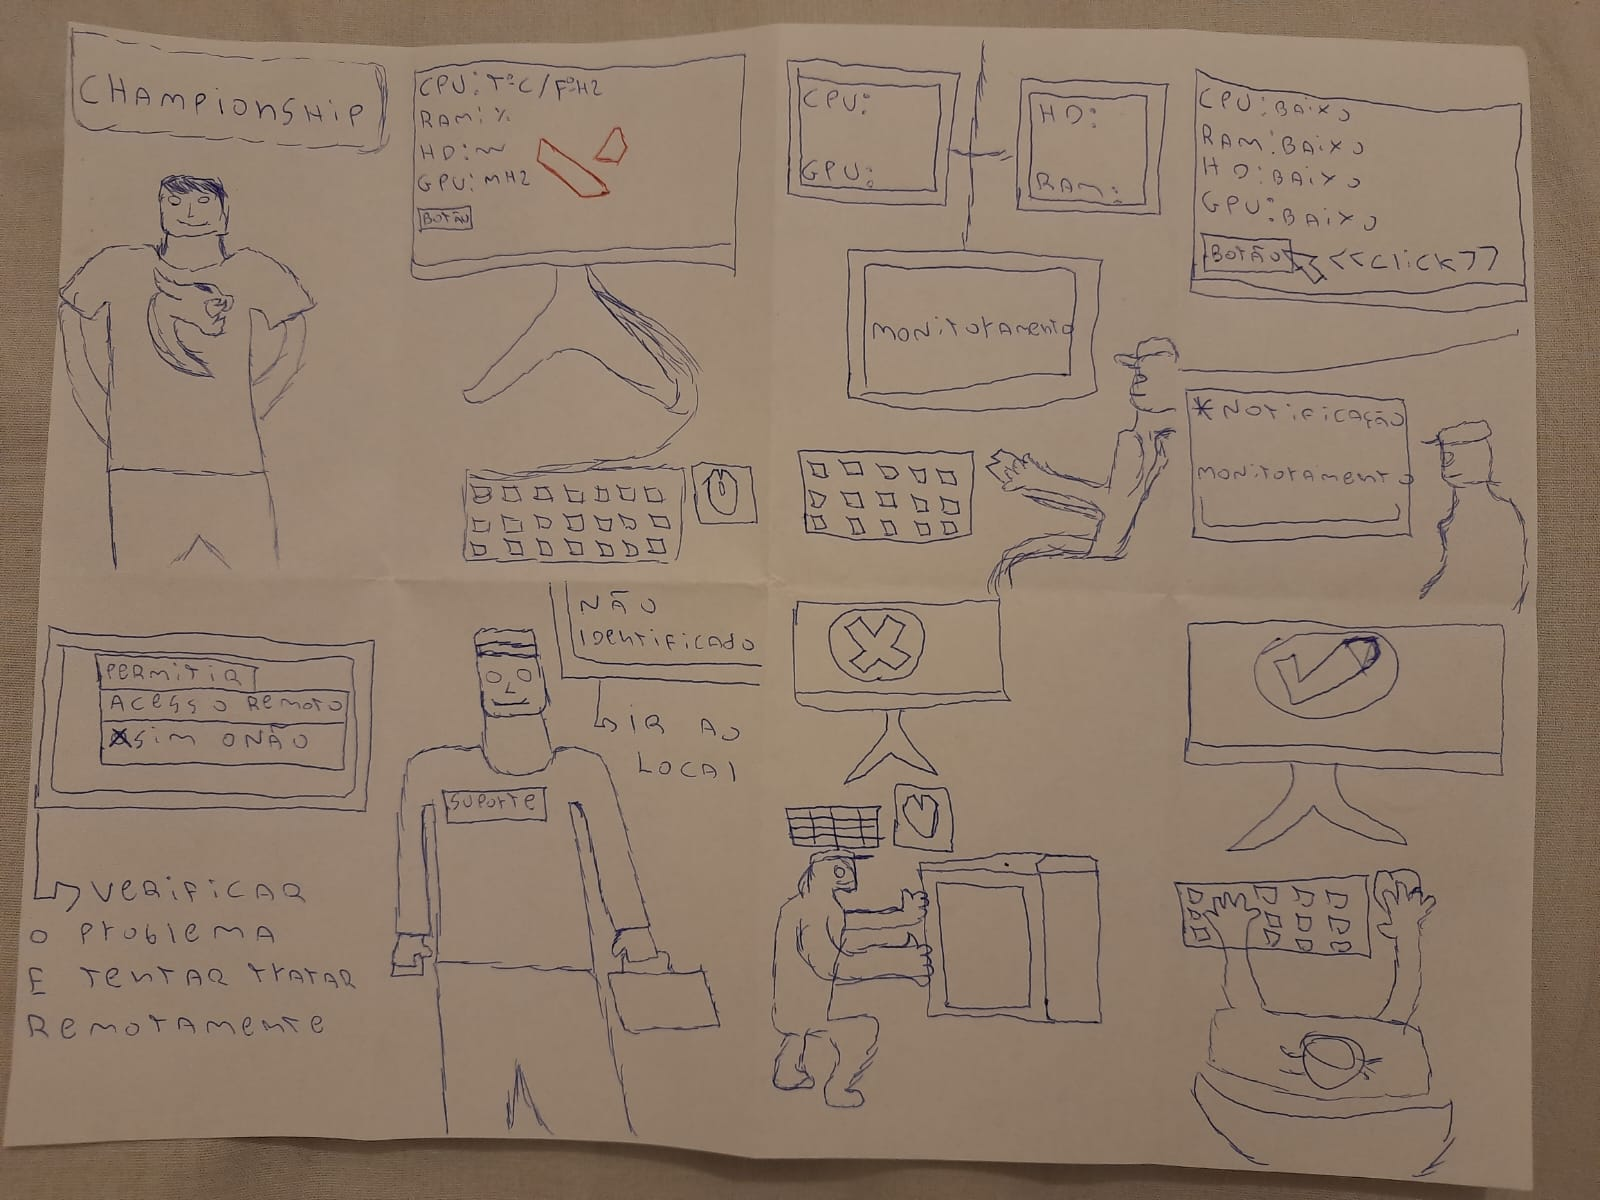 CHAMPIONSHIP
CPU: TºC/FºHZ
RAM: %
HD: ~
GPU: MHZ
BOTÃO
CPU:
GPU:
HD:
RAM:
MONITORAMENTO
CPU: BAIXO
RAM: BAIXO
HD: BAIXO
GPU: BAIXO
BOTÃO <<CLICK>>
*NOTIFICAÇÃO
MONITORAMENTO
PERMITIR
ACESSO REMOTO
XSIM ONÃO
VERIFICAR
O PROBLEMA
E TENTAR TRATAR
REMOTAMENTE
NÃO
IDENTIFICADO
IR AO
LOCAL
SUPORTE